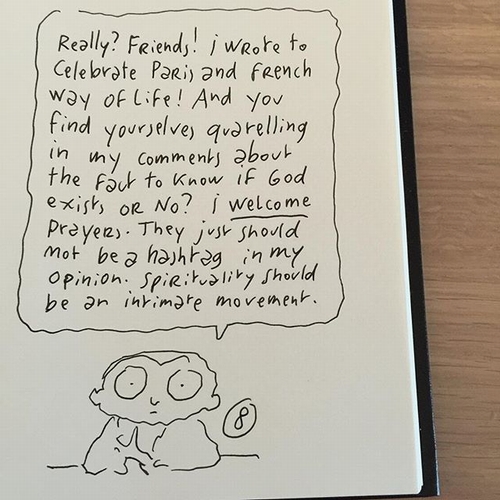 Really? Friends! i wrote to
celebrate Paris and french
way of life! And you
find yourselves quarelling
in my comments about
the fact to know if God
exists or no? i welcome
prayers. They just should
not be a hashtag in my
opinion. Spirituality should
be an intimate movement.
8